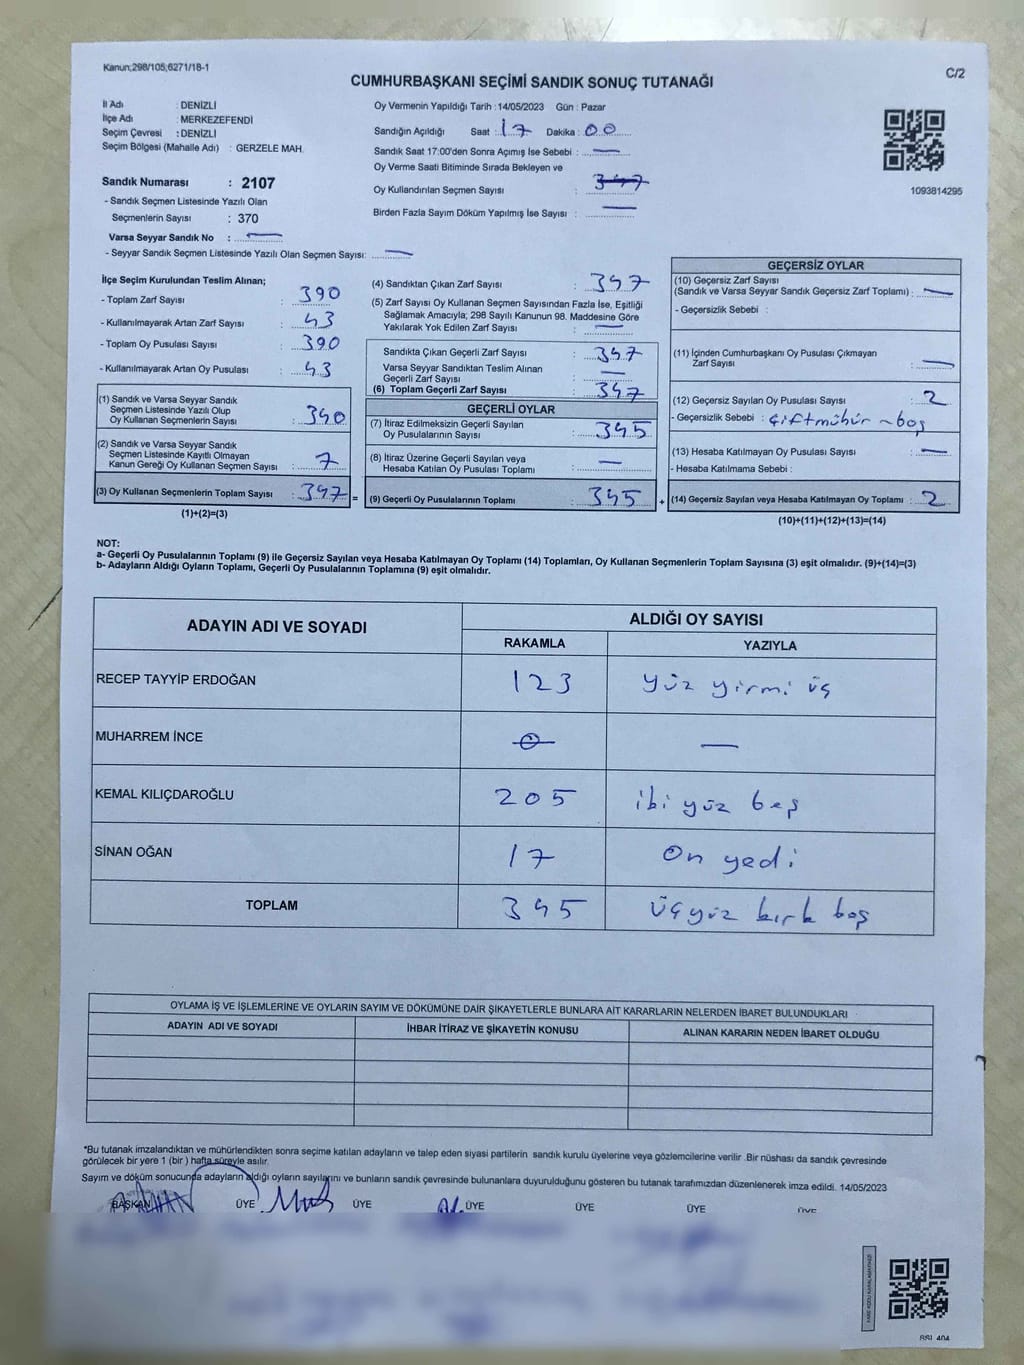 Kanun;298/105;6271/18-1
C/2
CUMHURBAŞKANI SEÇİMİ SANDIK SONUÇ TUTANAĞI
İl Adı : DENİZLİ
İlçe Adı : MERKEZEFENDİ
Seçim Çevresi : DENİZLİ
Seçim Bölgesi (Mahalle Adı) : GERZELE MAH.
Sandık Numarası : 2107
- Sandık Seçmen Listesinde Yazılı Olan
Seçmenlerin Sayısı : 370
Varsa Seyyar Sandık No : —
- Seyyar Sandık Seçmen Listesinde Yazılı Olan Seçmen Sayısı: —
Oy Vermenin Yapıldığı Tarih :14/05/2023 Gün : Pazar
Sandığın Açıldığı Saat : 17 Dakika : 00
Sandık Saat 17:00'den Sonra Açımış İse Sebebi : —
Oy Verme Saati Bitiminde Sırada Bekleyen ve
Oy Kullandırılan Seçmen Sayısı : 347
Birden Fazla Sayım Döküm Yapılmış İse Sayısı : —
1093814295
İlçe Seçim Kurulundan Teslim Alınan;
- Toplam Zarf Sayısı : 390
- Kullanılmayarak Artan Zarf Sayısı : 43
- Toplam Oy Pusulası Sayısı : 390
- Kullanılmayarak Artan Oy Pusulası : 43
(1) Sandık ve Varsa Seyyar Sandık
Seçmen Listesinde Yazılı Olup
Oy Kullanan Seçmenlerin Sayısı : 340
(2) Sandık ve Varsa Seyyar Sandık
Seçmen Listesinde Kayıtlı Olmayan
Kanun Gereği Oy Kullanan Seçmen Sayısı : 7
(3) Oy Kullanan Seçmenlerin Toplam Sayısı : 347 =
(1)+(2)=(3)
(4) Sandıktan Çıkan Zarf Sayısı : 347
(5) Zarf Sayısı Oy Kullanan Seçmen Sayısından Fazla İse, Eşitliği
Sağlamak Amacıyla; 298 Sayılı Kanunun 98. Maddesine Göre
Yakılarak Yok Edilen Zarf Sayısı : —
Sandıkta Çıkan Geçerli Zarf Sayısı : 347
Varsa Seyyar Sandıktan Teslim Alınan
Geçerli Zarf Sayısı : —
(6) Toplam Geçerli Zarf Sayısı : 347
GEÇERLİ OYLAR
(7) İtiraz Edilmeksizin Geçerli Sayılan
Oy Pusulalarının Sayısı : 345
(8) İtiraz Üzerine Geçerli Sayılan veya
Hesaba Katılan Oy Pusulası Toplamı : —
(9) Geçerli Oy Pusulalarının Toplamı : 345 +
GEÇERSİZ OYLAR
(10) Geçersiz Zarf Sayısı
(Sandık ve Varsa Seyyar Sandık Geçersiz Zarf Toplamı) : —
- Geçersizlik Sebebi :
(11) İçinden Cumhurbaşkanı Oy Pusulası Çıkmayan
Zarf Sayısı : —
(12) Geçersiz Sayılan Oy Pusulası Sayısı : 2
- Geçersizlik Sebebi : çift mühür ~ boş
(13) Hesaba Katılmayan Oy Pusulası Sayısı : —
- Hesaba Katılmama Sebebi :
(14) Geçersiz Sayılan veya Hesaba Katılmayan Oy Toplamı : 2
(10)+(11)+(12)+(13)=(14)
NOT:
a- Geçerli Oy Pusulalarının Toplamı (9) ile Geçersiz Sayılan veya Hesaba Katılmayan Oy Toplamı (14) Toplamları, Oy Kullanan Seçmenlerin Toplam Sayısına (3) eşit olmalıdır. (9)+(14)=(3)
b- Adayların Aldığı Oyların Toplamı, Geçerli Oy Pusulalarının Toplamına (9) eşit olmalıdır.
ADAYIN ADI VE SOYADI ALDIĞI OY SAYISI
RAKAMLA YAZIYLA
RECEP TAYYİP ERDOĞAN 123 yüz yirmi üç
MUHARREM İNCE 0 —
KEMAL KILIÇDAROĞLU 205 iki yüz beş
SİNAN OĞAN 17 on yedi
TOPLAM 345 üçyüz kırk beş
OYLAMA İŞ VE İŞLEMLERİNE VE OYLARIN SAYIM VE DÖKÜMÜNE DAİR ŞİKAYETLERLE BUNLARA AİT KARARLARIN NELERDEN İBARET BULUNDUKLARI
ADAYIN ADI VE SOYADI İHBAR İTİRAZ VE ŞİKAYETİN KONUSU ALINAN KARARIN NEDEN İBARET OLDUĞU
*Bu tutanak imzalandıktan ve mühürlendikten sonra seçime katılan adayların ve talep eden siyasi partilerin sandık kurulu üyelerine veya gözlemcilerine verilir .Bir nüshası da sandık çevresinde
görülecek bir yere 1 (bir ) hafta süreyle asılır.
Sayım ve döküm sonucunda adayların aldığı oyların sayılarını ve bunların sandık çevresinde bulunanlara duyurulduğunu gösteren bu tutanak tarafımızdan düzenlenerek imza edildi. 14/05/2023
BAŞKAN ÜYE ÜYE ÜYE ÜYE ÜYE ÜYE